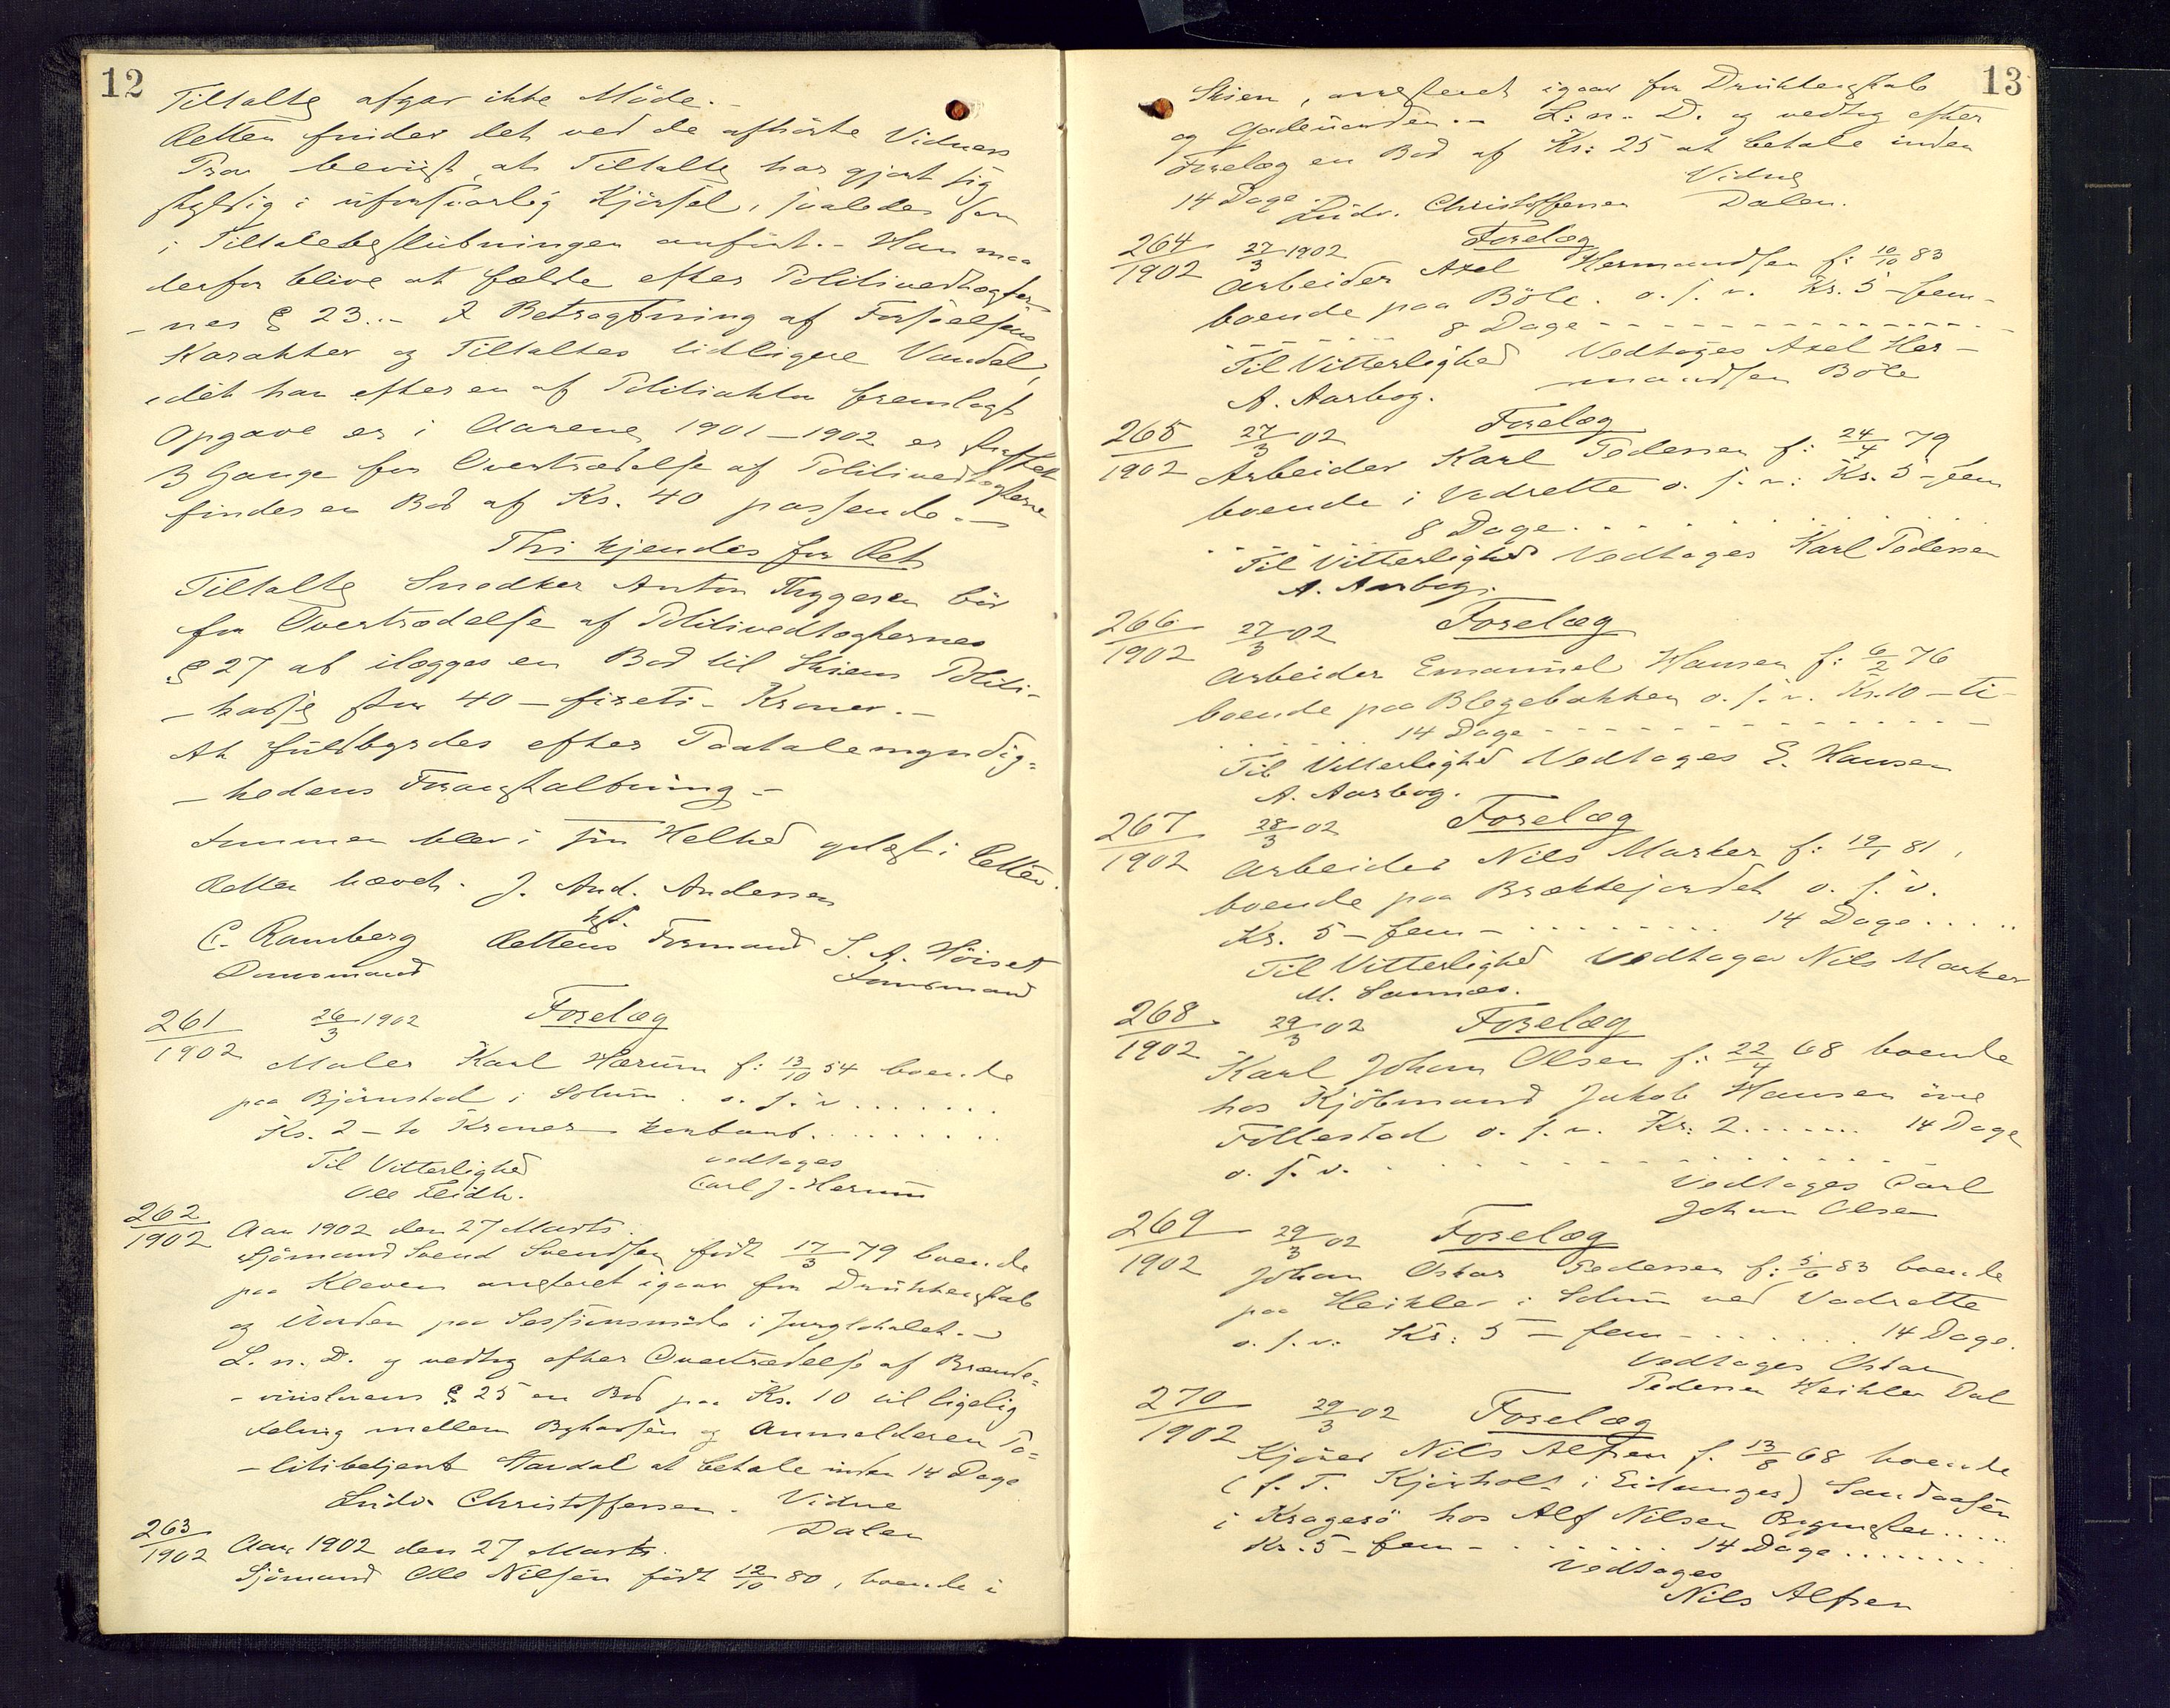 12
Tiltalte afgav ikke Møde.-
Retten finder det ved de afhørte Vidners
Prov bevist, at Tiltalte har gjort sig
skyldig i uforsvarlig Kjørsel, saaledes som
i Tiltalebeslutningen anført.- Han maa
derfor blive at fælde efter Politivedtægter-
-nes § 23.- I Betragtning af Forseelsens
Karakter og Tiltaltes tidligere Vandel,
idet han efter en af Politiaktor fremlagt
Opgave er i Aarene 1901-1902 er straffet
3 Gange for Overtrædelse af Politivedtægterne
findes en Bod af Kr. 40 passende.-
Thi kjendes for Ret
Tiltalte Snedker Anton Thygesen bør
for Overtrædelse af Politivedtægternes
§ 27 at ilægges en Bod til Skiens Politi-
-kasse stor 40 - fireti - Kroner.-
At fuldbyrdes efter Paatalemyndig=
-hedens Foranstaltning -
Dommen blev i sin Helhed oplæst i Retten.
Retten hævet. J. And. Andersen
kst.
C. Ramberg Rettens Formand S. A. Höiset
Domsmand Domsmand
261/1902 26/3 1902 Forelæg
Maler Karl Hærum f: 13/10 54 boende
paa Bjørnstad i Solum. o. s. v. . . . . . .
Kr. 2 - to Kroner kontant. . . . . . . . .
Til Vitterlighed vedtages
Ole Eidh. Carl J. Herum
262/1902 Aar 1902 den 27 Marts.
Sjømand Svend Svendsen født 17/3 79 boende
paa Kleven arresteret igaar for Drukkenskab
og Uorden paa Sessionsmøde i
L. n. D. og vedtog efter Overtrædelse af Brænde=
-vinslovens § 25 en Bod paa Kr. 10 til ligelig
deling mellem Bykassen og Anmelderen Po=
-litibetjent Stardal at betale inden 14 Dage
Ludv. Christoffersen. Vidne
Dalen
263/1902 Aar 1902 den 27 Marts.
Sjømand Ole Nilsen født 12/10 80, boende i
13
Skien, arresteret igaar for Drukkenskab
og Gadeuorden.- L. n. D. og vedtog efter
Forelæg en Bod af Kr: 25 at betale inden
14 Dage. Vidne
Ludv. Christoffersen Dalen.
264/1902 27/3 1902 Forelæg
Arbeider Axel Hermandsen f: 10/10 83
boende paa Böle. o. s. v. Kr. 5 - fem -
8 Dage - - - - - - - - - - - -
Til Vitterlighed Vedtages Axel Her-
A. Aarbog. mandsen Böle
265/1902 27/3 02 Forelæg
Arbeider Karl Pedersen f: 24/4 79
boende i Vadrette o. s. v. Kr. 5 - fem
8 Dage . . . . . . . . .
Til Vitterlighed Vedtages Karl Pedersen
A. Aarbog.
266/1902 27/3 02 Forelæg
Arbeider Emanuel Hansen f: 6/2 76
boende paa Blegebakken o. s. v. Kr. 10 - ti -
14 Dage - - - - - - - - -
Til Vitterlighed Vedtages E. Hansen
A. Aarbog.
267/1902 28/3 02 Forelæg
Arbeider Nils Marker f: 19/1 81,
boende paa Brækkejordet o. s. v.
Kr. 5 - fem - . . . . . . . . 14 Dage . . . . .
Til Vitterlighed Vedtages Nils Marker
M. Sannes.
268/1902 29/3 02 Forelæg
Karl Johan Olsen f: 22/4 68 boende
hos Kjöbmand Jakob Hansen
Follestad o. s. v. Kr: 2 . . . . . . 14 Dage
o. s. v. . . . . . . . . . . .
Vedtages Carl
Johan Olsen
269/1902 29/3 02 Forelæg
Johan Oskar Pedersen f: 5/6 83 boende
paa Heikler i Solum ved Vadrette
o. s. v. Kr: 5 - fem - . . . . . . 14 Dage.
Vedtages Oskar
Pedersen Heikler Dal
270/1902 29/3 02 Forelæg
Kjører Nils Alfsen f. 13/8 68 boende
(f. T. Kjørholt i Eidanger) Sandaasen
i Kragerø hos Alf Nilsen Bygmester....
Kr. 5 - fem - . . . . . . 14 Dage . . . . . . . .
Vedtages
Nils Alfsen